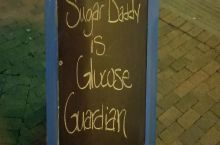 Sugar Daddy
is
Glucose
Guardian